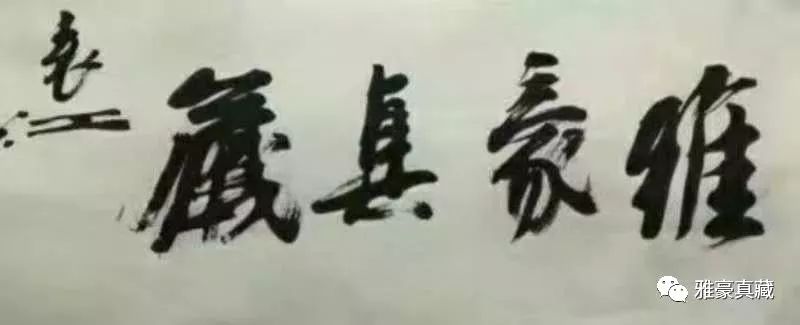 雅豪真藏
袁江
雅豪真藏